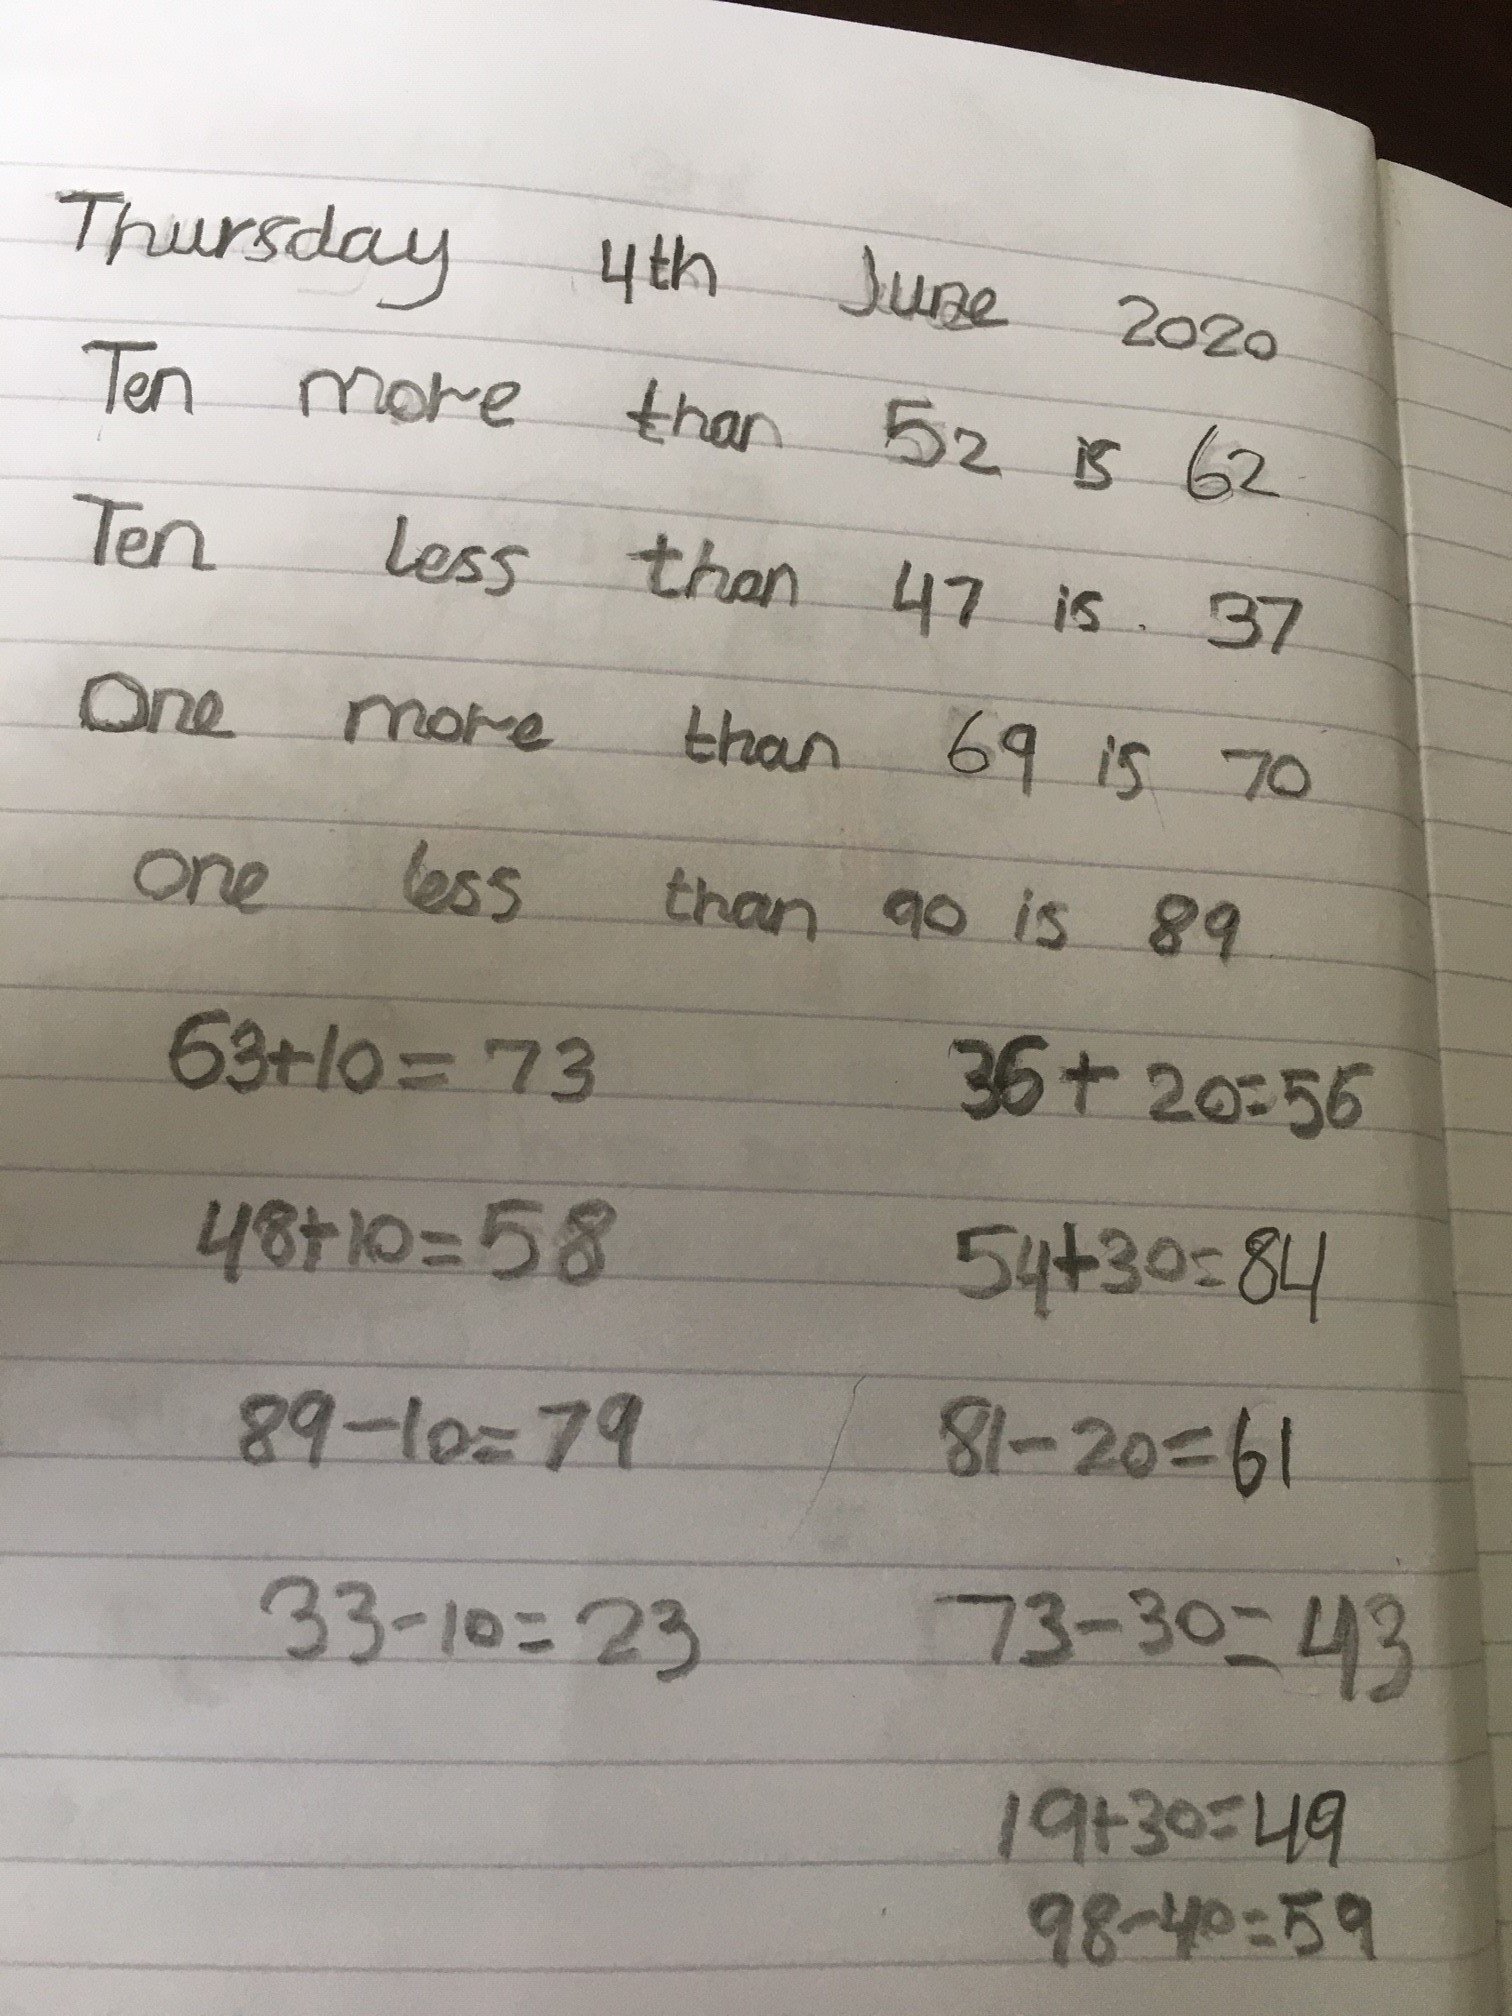 Thursday 4th June 2020
Ten more than 52 is 62
Ten less than 47 is. 37
One more than 69 is 70
One less than 90 is 89
63+10=73 36+20=56
48+10=58 54+30=84
89-10=79 81-20=61
33-10=23 73-30=43
19+30=49
98-40=59